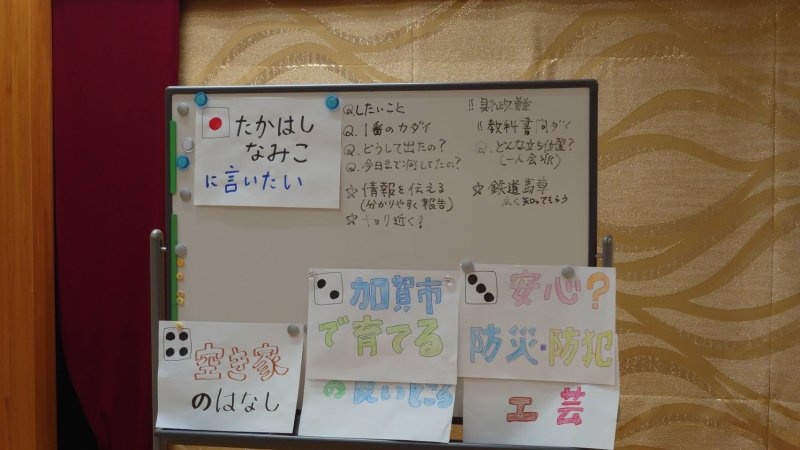 たかはし
なみこ
に言いたい
Q したいこと
Q. 1番のカダイ
Q. どうして出たの?
Q. 今日まで何してたの?
☆ 情報を伝える
(分かりやすく報告)
☆ キョリ近く!
!! 財政難
!! 教科書問ダイ
Q. どんな立ち位置?
(一人会派)
☆ 鉄道馬車
広く知ってもらう
加賀市
で育てる
の良いところ
安心?
防災・防犯
工芸
空き家
のはなし